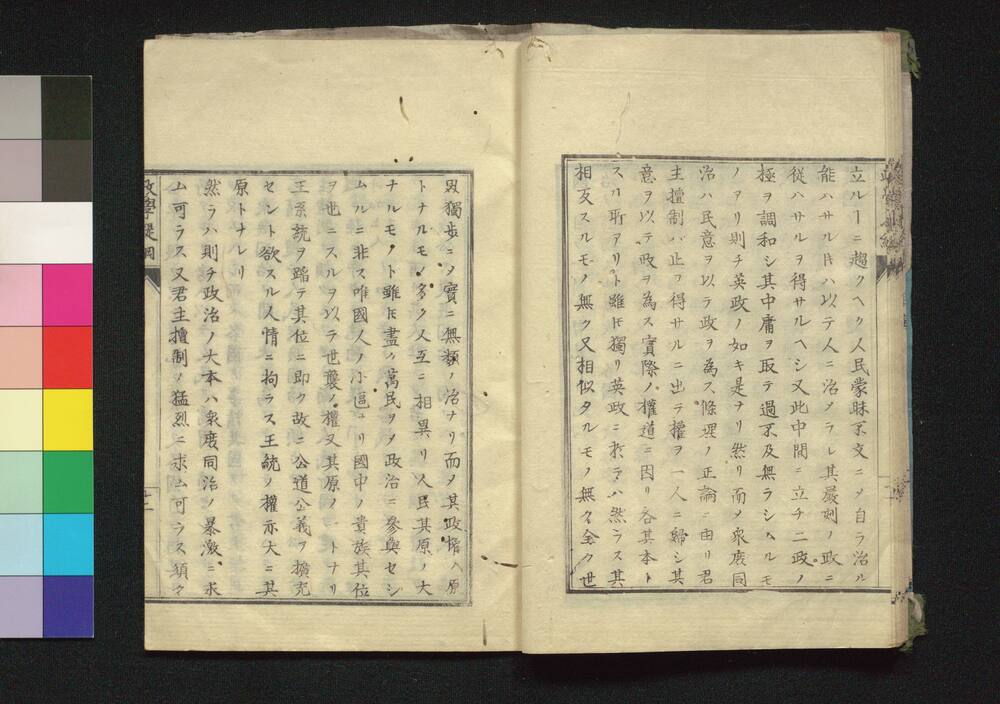 立ルーニ趨クヘク人民蒙昧不文ニメ自ラ治ル
能ハサル𪜈ハ以テ人ニ治メラレ其嚴刻ノ政ニ
從ハサルヲ得サルヘシ又此中間ニ立チ二政ノ
極ヲ調和シ其中庸ヲ取テ過不及無ラシムルモ
ノアリ則チ英政ノ如キ是ナリ然リ而メ衆庶同
治ハ民意ヲ以テ政ヲ為ス條理ノ正論ニ由リ君
主擅制ハ止ヲ得サルニ出テ權ヲ一人ニ歸シ其
意ヲ以テ政ヲ為ス實際ノ權道ニ因リ各其本ト
スル所アリト雖𪜈獨リ英政ニ於テハ然ラス其
相反スルモノ無ク又相似タルモノ無ク全ク世
界獨歩ニメ實ニ無類ノ治ナリ而メ其政權ハ原
トナルモノ多ク又互ニ相異リ人民其原ノ大
ナルモノト雖𪜈盡ク萬民ヲメ政治ニ參與セシ
ムルニ非ス唯國人ノ小區ナリ國中ノ貴族其位
ヲ世ニスルヲ以テ世襲ノ權又其原ノ一トナリ
王系統ヲ踏テ其位ニ即ク故ニ公道公義ヲ擴充
セント欲スル人情ニ拘ラス王統ノ權亦大ニ其
原トナレリ
然ラハ則チ政治ノ大本ハ衆庶同治ノ暴激ニ求
ム可ラス又君主擅制ノ猛烈ニ求ム可ラス須ク
政學提綱
十二